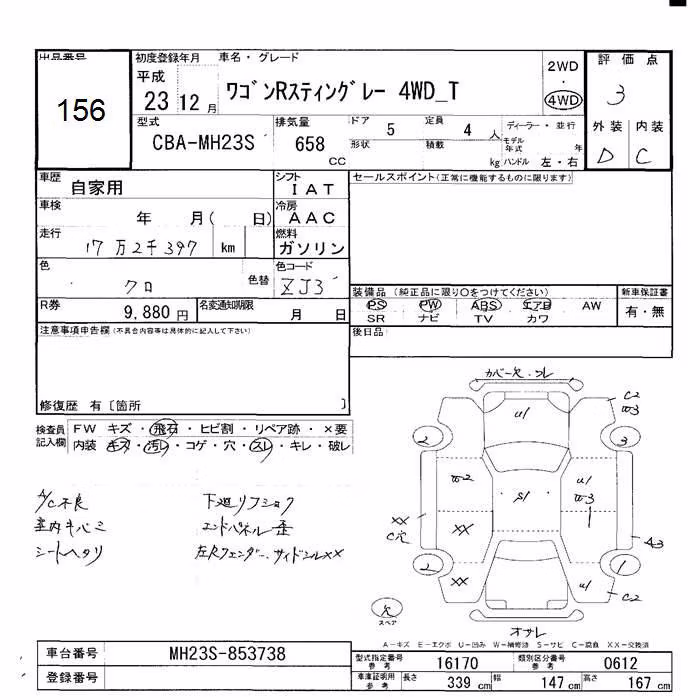 出品番号
156
初度登録年月
平成
23 12月
車名・グレード
ワゴンRスティングレー 4WD_T
2WD
・
4WD
評価点
3
外装 内装
D C
型式
CBA-MH23S
排気量
658
CC
ドア 5 定員 4 人
形状 積載 kg
ディーラー・並行
モデル年式 年
ハンドル 左・右
車歴
自家用
シフト
I A T
車検
年 月( 日)
冷房
A A C
走行
17万2千397 km
燃料
ガソリン
色
クロ
色替
色コード
ZJ3
R券
9,880 円
名変通知期限
月 日
セールスポイント(正常に機能するものに限ります)
装備品 (純正品に限り○をつけてください)
PS PW ABS エアB AW
SR ナビ TV カワ
新車保証書
有・無
後日品
注意事項申告欄(不具合内容等は具体的に記入して下さい)
修復歴 有〔箇所 〕
検査員記入欄
FW キズ・飛石・ヒビ割・リペア跡・×要
内装 キズ・汚レ・コゲ・穴・スレ・キレ・破レ
A/C不良
室内キバミ
シートヘタリ
下廻リフショク
エンドパネル歪
左Rフェンダー、サイドシルXX
カバー欠・フレ
U1
C2
W3
2
3
W2
S1
U1
W3
XX
C穴
XX
A3
2
1
XX
U1
C2
欠
スペア
オサレ
A-キズ E-エクボ U-凹み W-補修跡 S-サビ C-腐食 XX-交換済
車台番号
MH23S-853738
登録番号
型式指定番号
参考
16170
類別区分番号
参考
0612
車庫証明用
参考
長さ 339 cm
幅 147 cm
高さ 167 cm